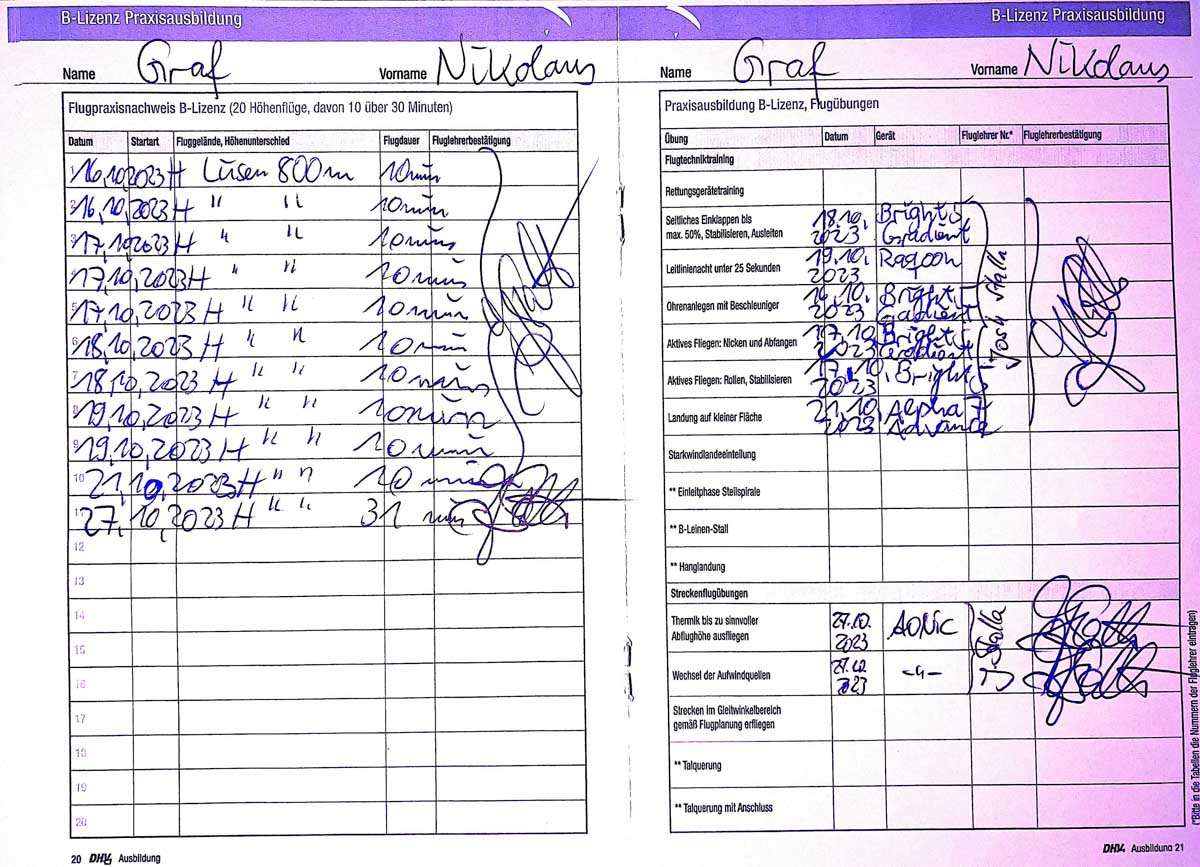 B-Lizenz Praxisausbildung
Name Graf Vorname Nikolaus
Flugpraxisnachweis B-Lizenz (20 Höhenflüge, davon 10 über 30 Minuten)
Datum Startart Fluggelände, Höhenunterschied Flugdauer Fluglehrerbestätigung
1 16.10.2023 H Lüsen 800m 10min
2 16.10.2023 H " " 10min
3 17.10.2023 H " " 10min
4 17.10.2023 H " " 10min
5 17.10.2023 H " " 10min
6 18.10.2023 H " " 10min
7 18.10.2023 H " " 10min
8 19.10.2023 H " " 10min
9 19.10.2023 H " " 10min
10 21.10.2023 H " " 10min
11 27.10.2023 H " " 31 min
12
13
14
15
16
17
18
19
20
20 DHV Ausbildung
B-Lizenz Praxisausbildung
Name Graf Vorname Nikolaus
Praxisausbildung B-Lizenz, Flugübungen
Übung Datum Gerät Fluglehrer Nr.* Fluglehrerbestätigung
Flugtechniktraining
Rettungsgerätetraining
Seitliches Einklappen bis 18.10. Bright 5
max. 50%, Stabilisieren, Ausleiten 2023 Gradient
Leitlinienacht unter 25 Sekunden 19.10. Raqoon
2023
Ohrenanlegen mit Beschleuniger 16.10. Bright
2023 Gradient
Aktives Fliegen: Nicken und Abfangen 17.10. Bright
2023 Gradient
Aktives Fliegen: Rollen, Stabilisieren 17.10. Bright
2023
Landung auf kleiner Fläche 21.10. Alpha 7
2023 Advance
Starkwindlandeeinteilung
** Einleitphase Steilspirale
** B-Leinen-Stall
** Hanglandung
Streckenflugübungen
Thermik bis zu sinnvoller 27.10.
Abflughöhe ausfliegen 2023 AONIC J. Stalla
Wechsel der Aufwindquellen 27.10. -"-
2023
Strecken im Gleitwinkelbereich
gemäß Flugplanung erfliegen
** Talquerung
** Talquerung mit Anschluss
(*Bitte in die Tabellen die Nummern der Fluglehrer eintragen)
DHV Ausbildung 21